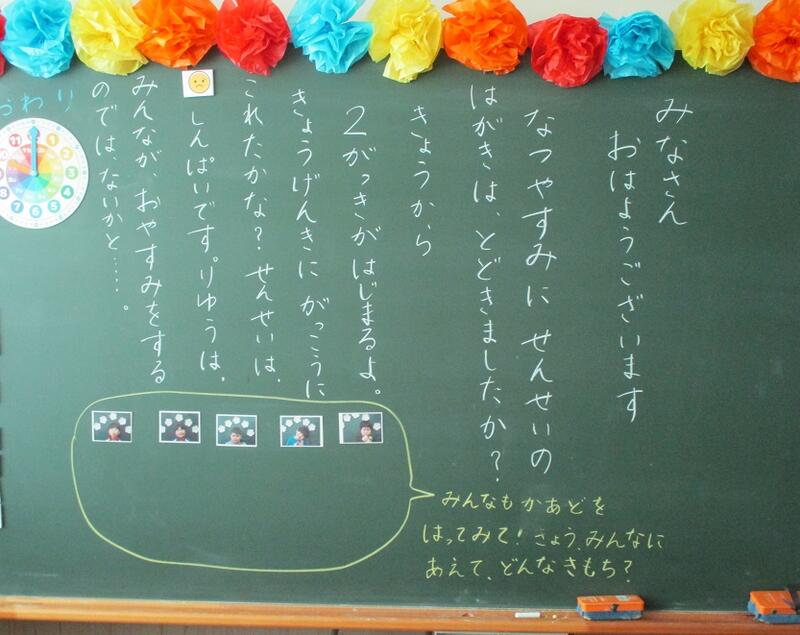 みなさん
おはようございます
なつやすみに せんせいの
はがきは、とどきましたか？
きょうから
２がっきがはじまるよ。
きょうげんきに がっこうに
これたかな？ せんせいは、
しんぱいです。りゆうは、
みんなが、おやすみをする
のでは、ないかと……。
みんなもかあどを
はってみて！きょう、みんなに
あえて、どんなきもち？
おわり
12
1
2
3
4
5
6
7
8
9
10
11